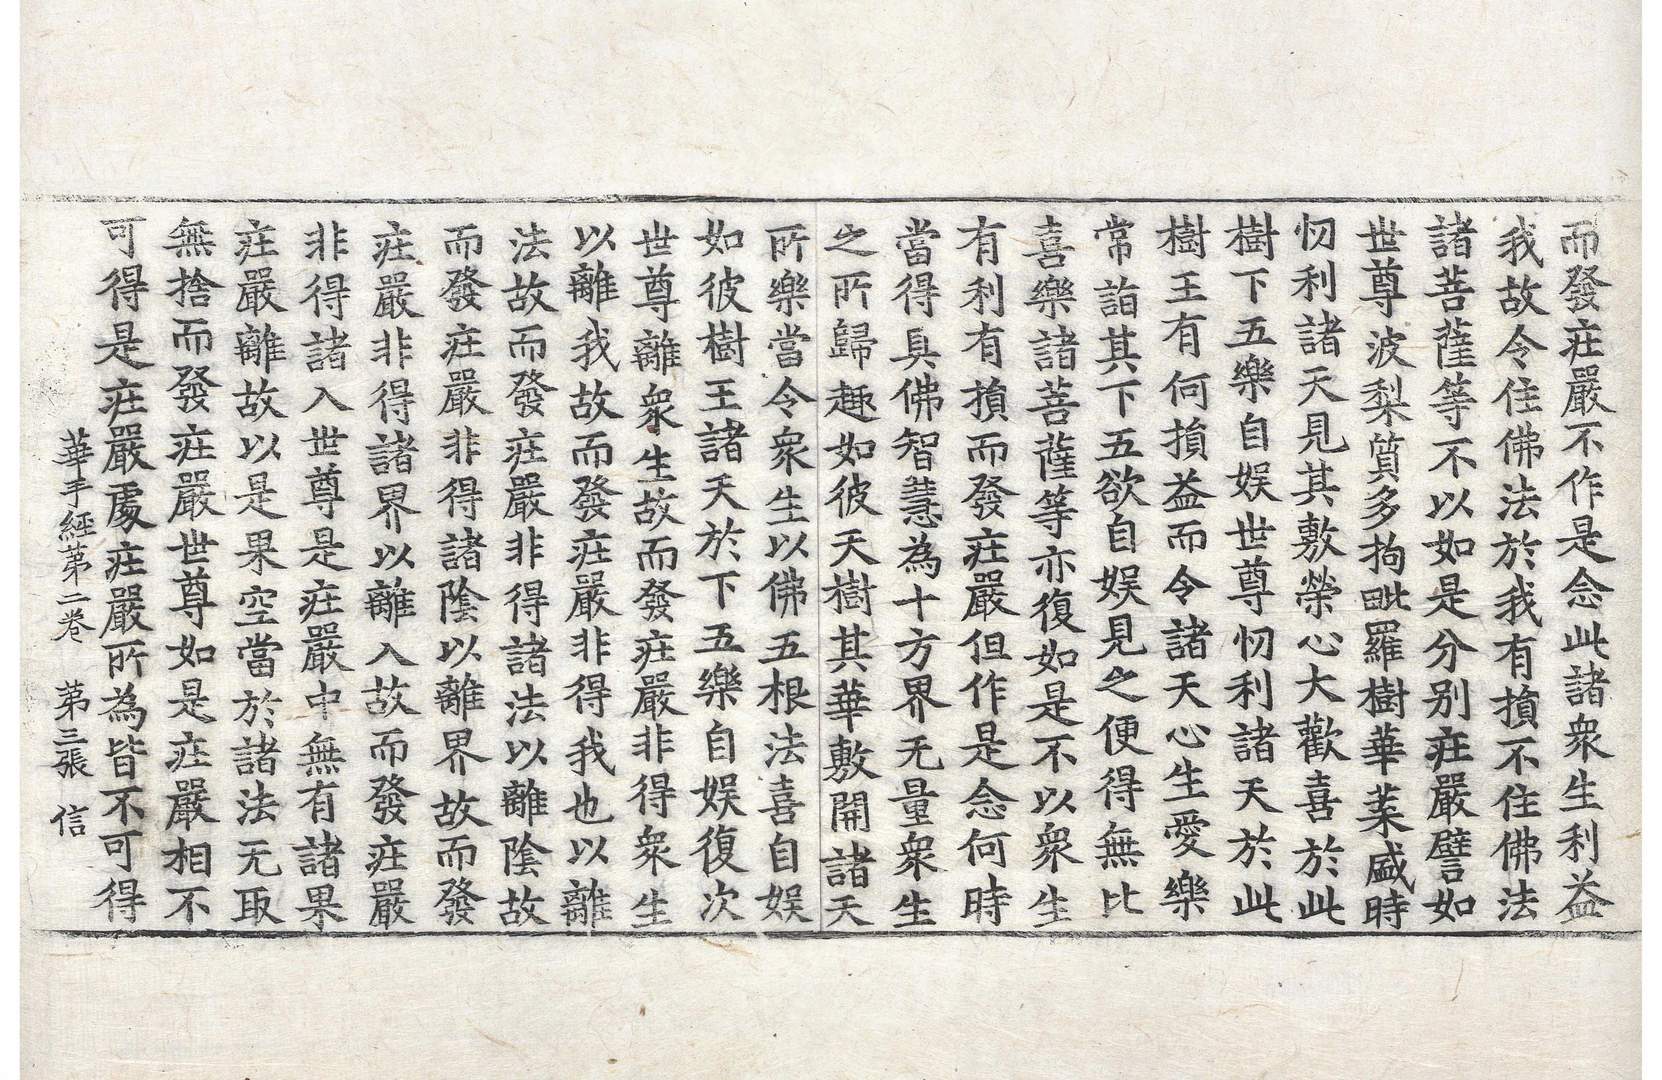 而發庄嚴不作是念此諸衆生利益
我故令住佛法於我有損不住佛法
諸菩薩等不以如是分別庄嚴譬如
世尊波梨質多拘毗羅樹華葉盛時
忉利諸天見其敷榮心大歡喜於此
樹下五樂自娛世尊忉利諸天於此
樹王有何損益而令諸天心生愛樂
常詣其下五欲自娛見之便得無比
喜樂諸菩薩等亦復如是不以衆生
有利有損而發庄嚴但作是念何時
當得具佛智慧為十方界无量衆生
之所歸趣如彼天樹其華敷開諸天
所樂當令衆生以佛五根法喜自娛
如彼樹王諸天於下五樂自娛復次
世尊離衆生故而發庄嚴非得衆生
以離我故而發庄嚴非得我也以離
法故而發庄嚴非得諸法以離陰故
而發庄嚴非得諸陰以離界故而發
庄嚴非得諸界以離入故而發庄嚴
非得諸入世尊是庄嚴中無有諸果
庄嚴離故以是果空當於諸法无取
無捨而發庄嚴世尊如是庄嚴相不
可得是庄嚴處庄嚴所為皆不可得
華手經第二卷 第三張 信